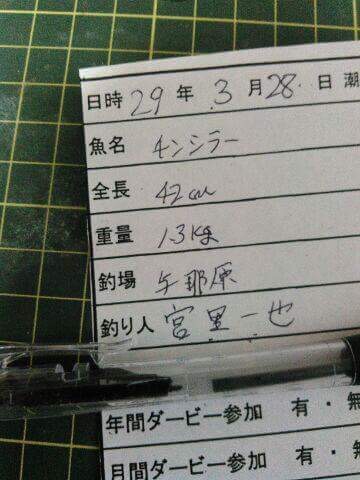 日時 29 年 3 月 28 日 潮
魚名 チンシラー
全長 42cm
重量 1.3kg
釣場 与那原
釣り人 宮里一也
年間ダービー参加 有・無
月間ダービー参加 有・無